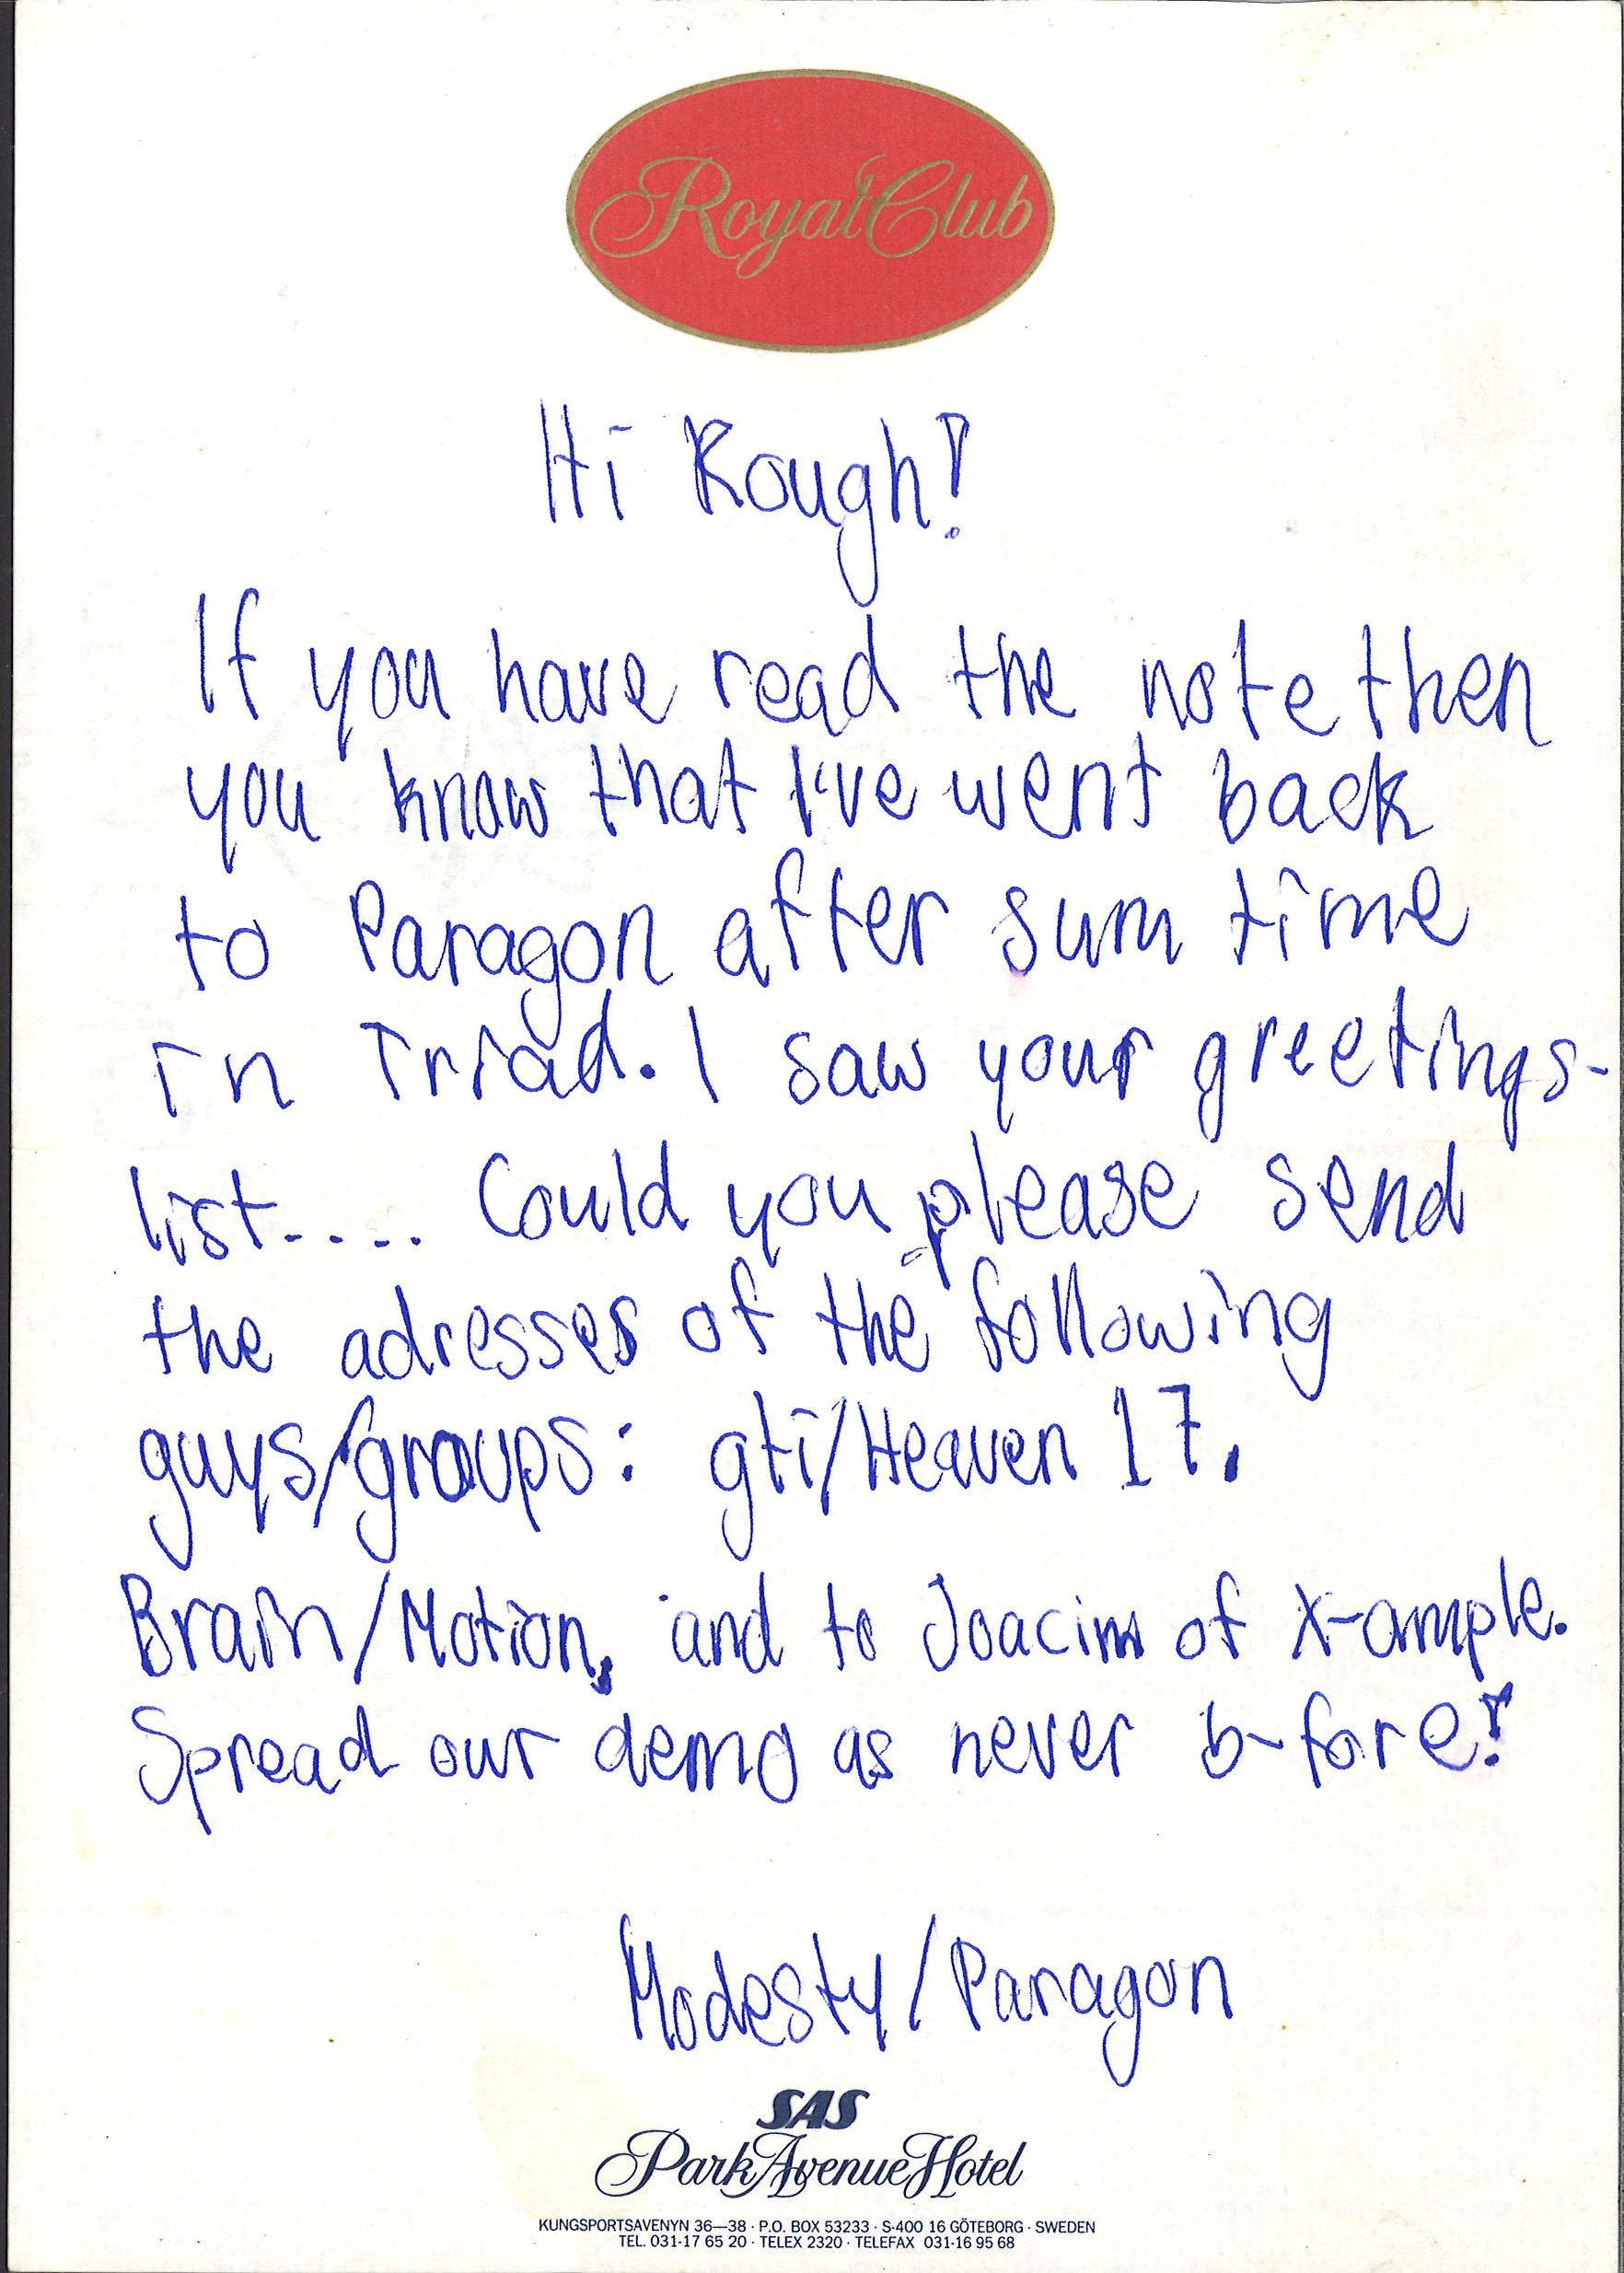 Royal Club
Hi Rough!
If you have read the note then
you know that I've went back
to Paragon after sum time
in Triad. I saw your greetings-
list.... Could you please send
the adresses of the following
guys/groups: gti/Heaven 17.
Brain/Motion, and to Joacim of X-ample.
Spread our demo as never b-fore!
Modesty/Paragon
SAS
Park Avenue Hotel
KUNGSPORTSAVENYN 36—38 · P.O. BOX 53233 · S-400 16 GÖTEBORG · SWEDEN
TEL. 031-17 65 20 · TELEX 2320 · TELEFAX 031-16 95 68